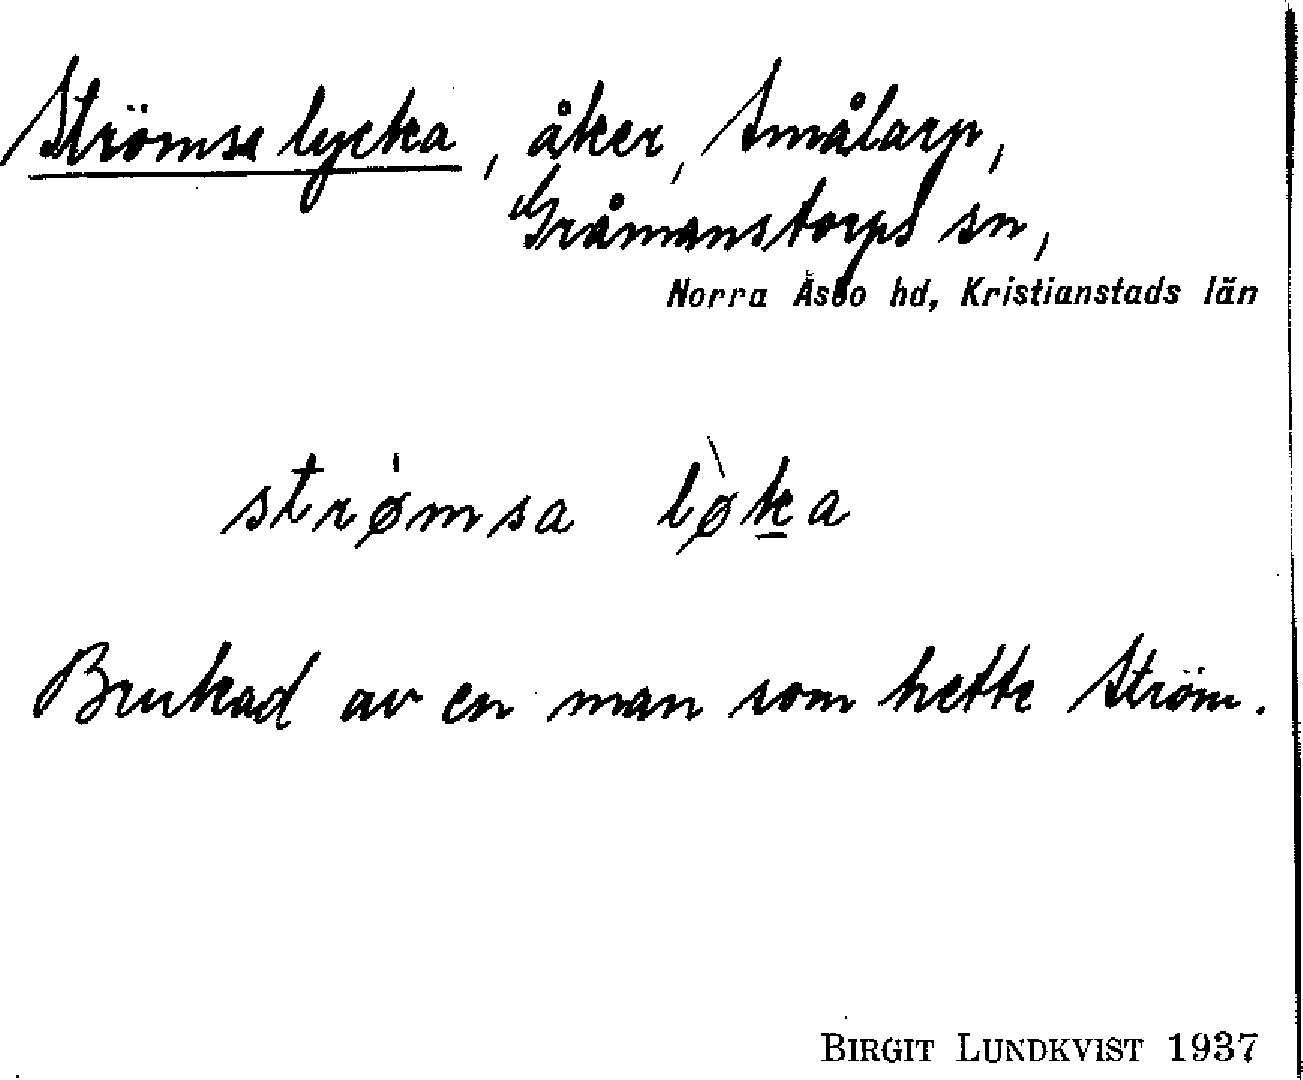 Strömsa lycka, åker, Smålarp,
Gråmanstorps sn,
Norra Åsbo hd, Kristianstads län
strø̍msa lø̀ḵa
Brukad av en man som hette Ström.
BIRGIT LUNDKVIST 1937